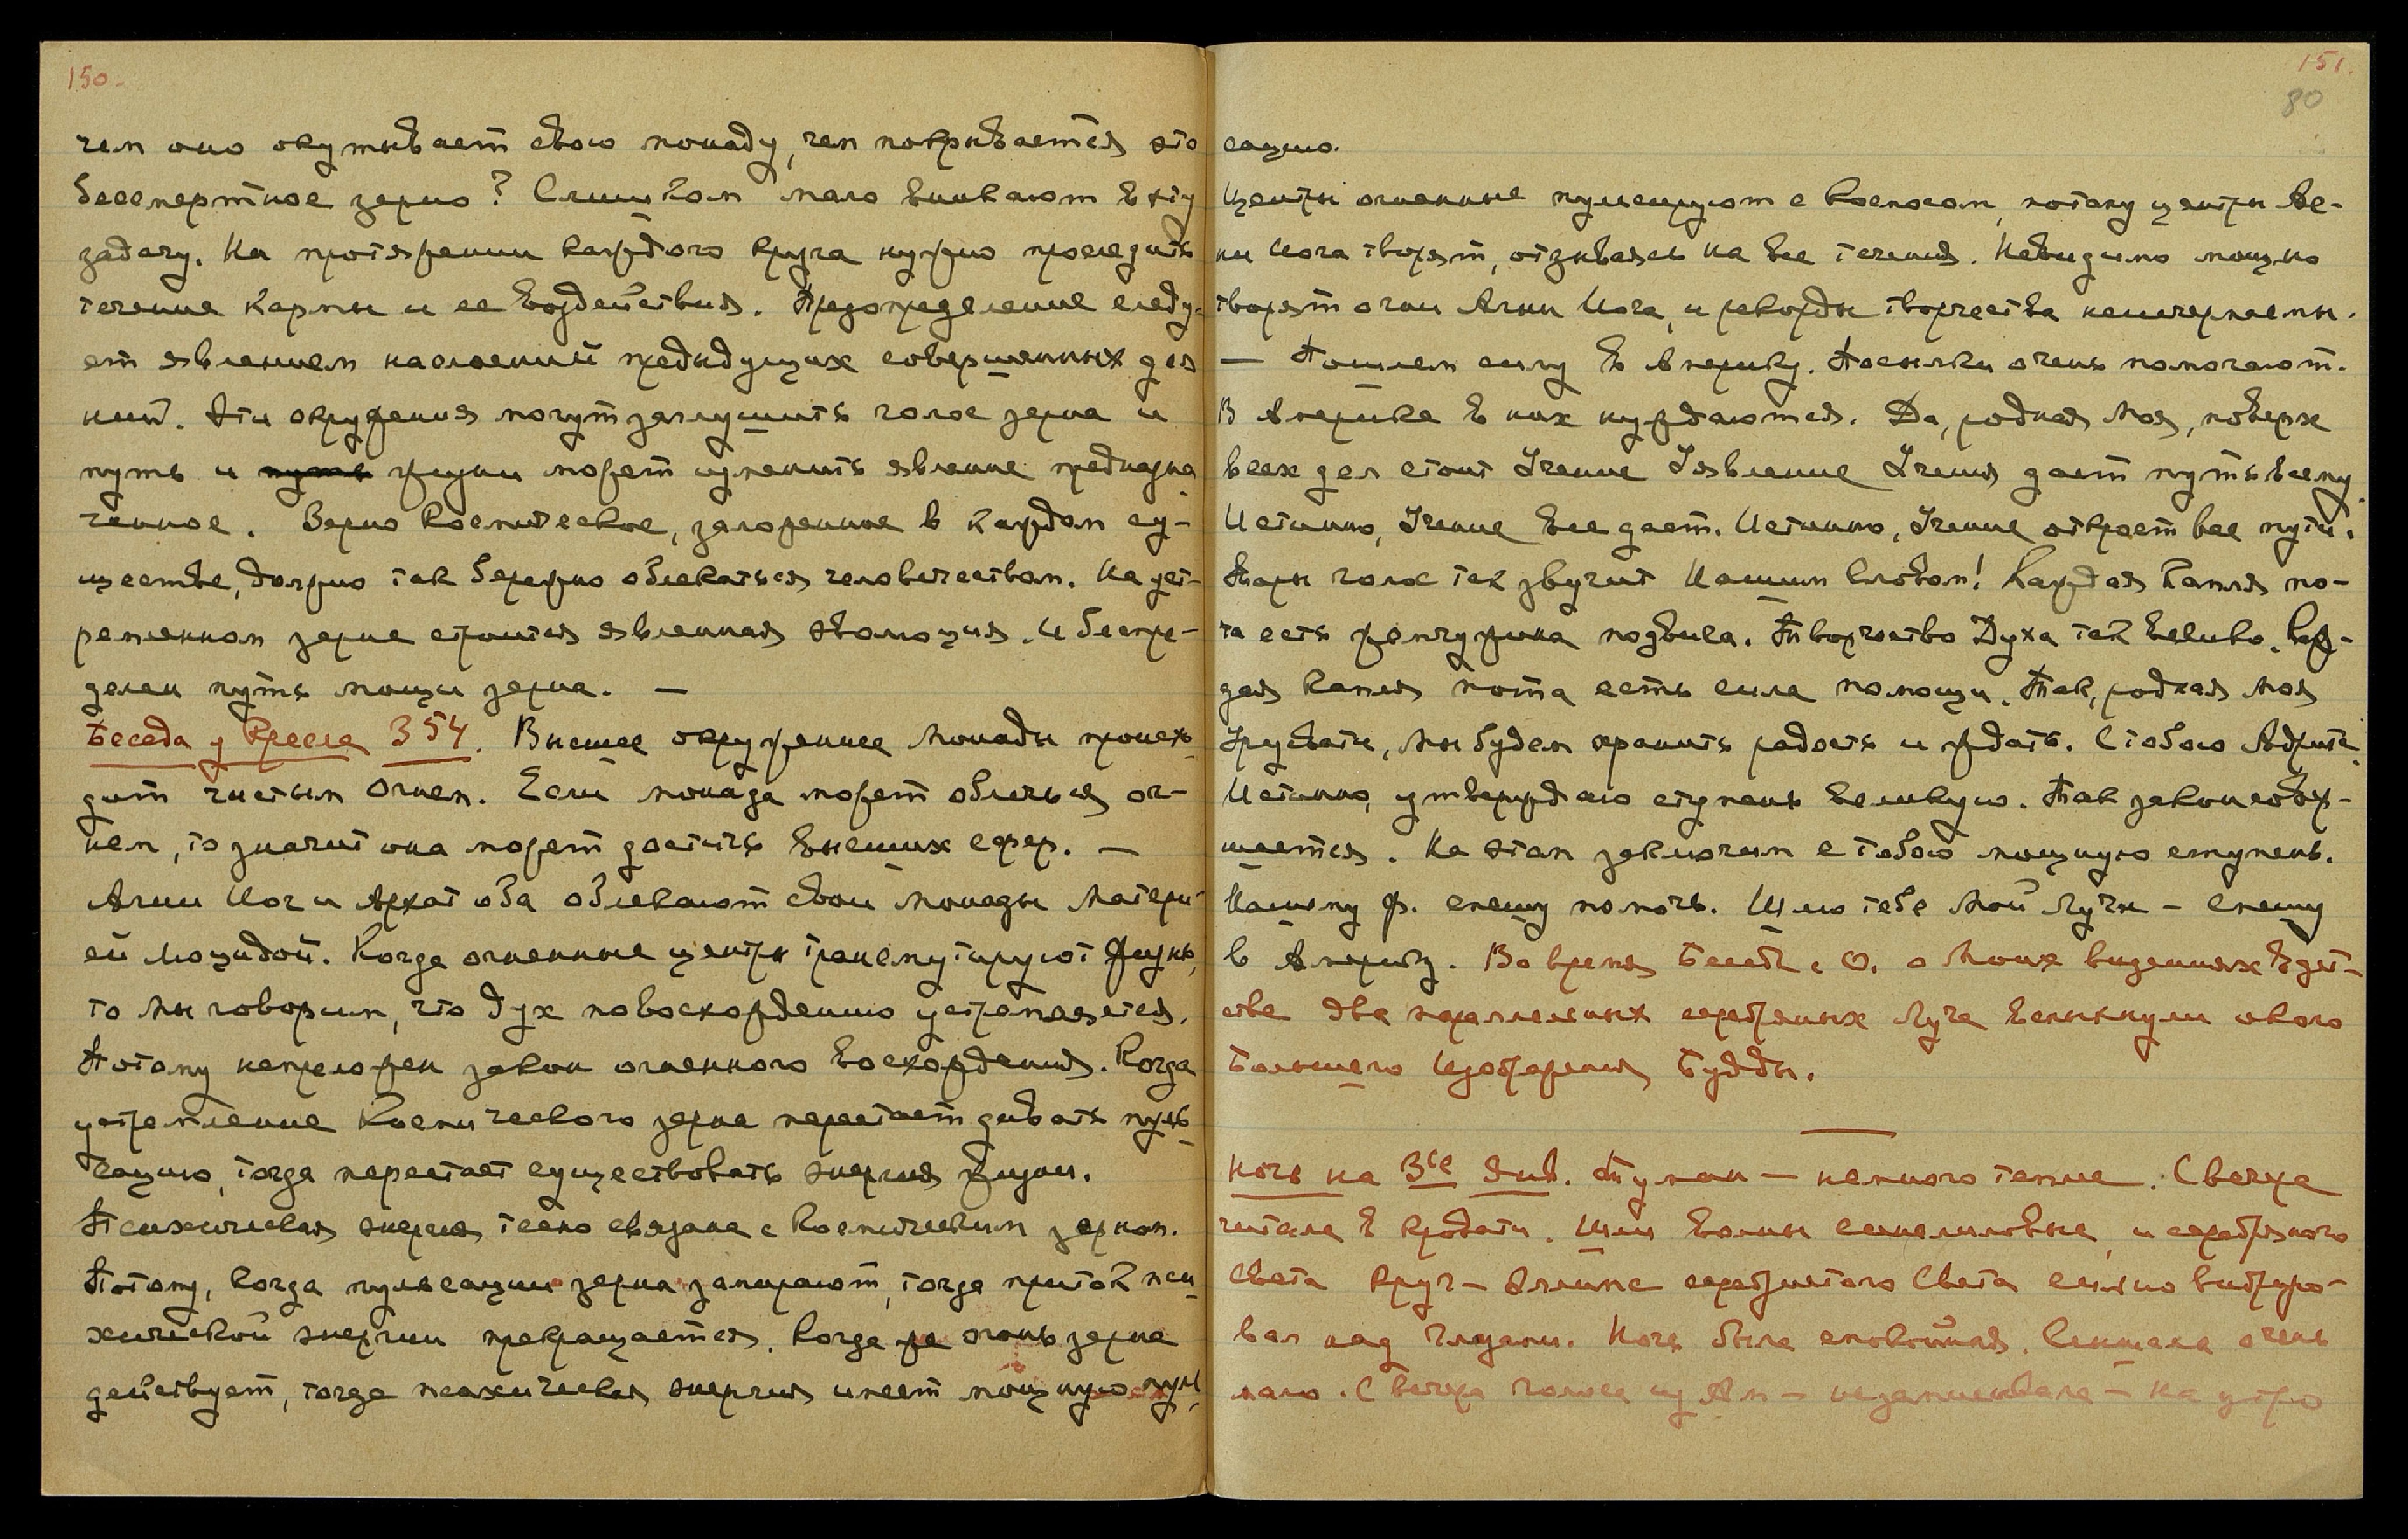 150.
чем оно окутывает свою монаду, чем покрывается это
бессмертное зерно? Слишком мало вникают в эту
задачу. На протяжении каждого круга нужно проследить
течение Кармы и ее воздействия. Предопределение следу-
ет явлением наслоений предыдущих совершенных дея
ний. Эти окружения могут заглушить голос зерна и
путь и путь жизни может изменить явление предназна
ченное. Зерно Космическое, заложенное в каждом су-
ществе, должно так бережно облекаться человечеством. На уст-
ремленном зерне строится явленная эволюция. И беспре-
делен путь мощи зерна. —
Беседа у Кресла 354. Высшее окружение Монады происхо
дит чистым Огнем. Если монада может облечься ог-
нем, то значит она может достичь высших сфер. —
Агни Йог и Архат оба облекают свои Монады Матери-
ей Люцидой. Когда огненные центры трансмутируют жизнь,
то Мы говорим, что дух новосхожденно устремляется.
Потому непреложен закон огненного восхождения. Когда
устремление Космического зерна перестает давать пуль
сацию, тогда перестает существовать энергия жизни.
Психическая энергия тесно связана с Космическим зерном.
Потому, когда пульсации зерна замирают, тогда приток пси
хической энергии прекращается. Когда же огонь зерна
действует, тогда психическая энергия имеет мощную пул
151.
80
сацию.
Центры огненные пульсируют с Космосом, потому центры Аг-
ни Йога творят, отзываясь на все течения. Невидимо мощно
творят огни Агни Йога, и рекорды творчества неисчерпаемы.
— Пошлем силу в Америку. Посылки очень помогают.
В Америке в них нуждаются. Да, родная Моя, поверх
всех дел стоит Учение Уявление Учения дает путь всему.
Истинно, Учение все дает. Истинно, Учение откроет все пути.
Тары голос так звучит Нашим Словом! Каждая Капля по-
та есть жемчужина подвига. Творчество Духа так велико. Каж-
дая капля пота есть сила помощи. Так, родная Моя
Урусвати, Мы будем хранить радость и ждать. С тобою
Истинно, утверждаю ступень великую. Так закон совер-
шается. На этом заключим с тобою мощную ступень.
Нашему ф. спешу помочь. Шлю тебе Мои Лучи — спешу
в Америку. Во время Беседы с О. о Моих видениях в дет-
стве два параллельных серебряных Луча вспыхнули около
Большего Изображения Будды.
Ночь на 3ье Янв. Туман — немного теплее. С вечера
читала в кровати. Шли волны синелиловые, и серебряного
Света Круг — Эллипс серебристого Света сильно вибриро-
вал над глазами. Ночь была спокойная. Слышала очень
мало. С вечера голоса из Ам — незапомнила — на утро